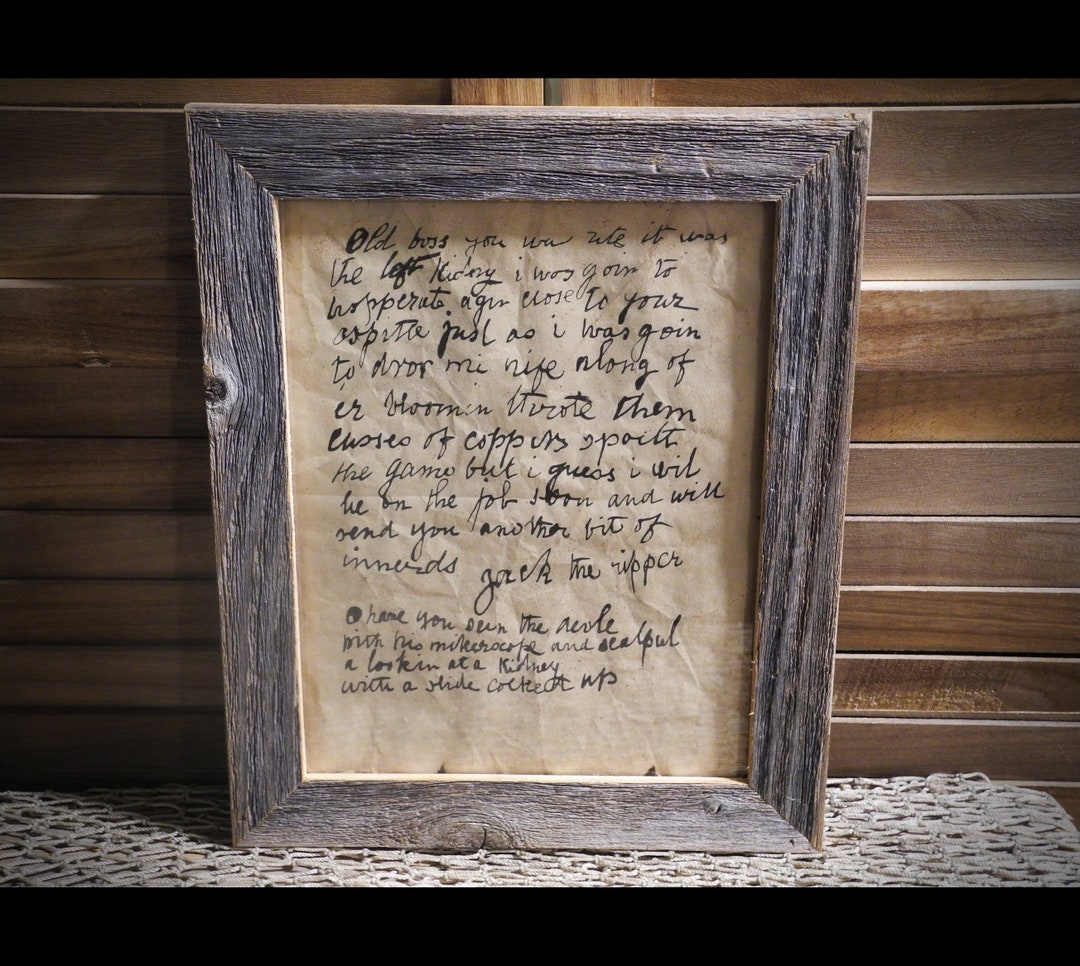 Old boss you was rite it was
the left kidny i was goin to
hopperate agin close to your
ospitle just as i was goin
to dror mi nife along of
er bloomin throte them
cusses of coppers spoilt
the game but i guess i wil
be on the job soon and will
send you another bit of
innerds Jack the ripper
O have you seen the devle
with his mikerscope and scalpul
a lookin at a Kidney
with a slide cocked up